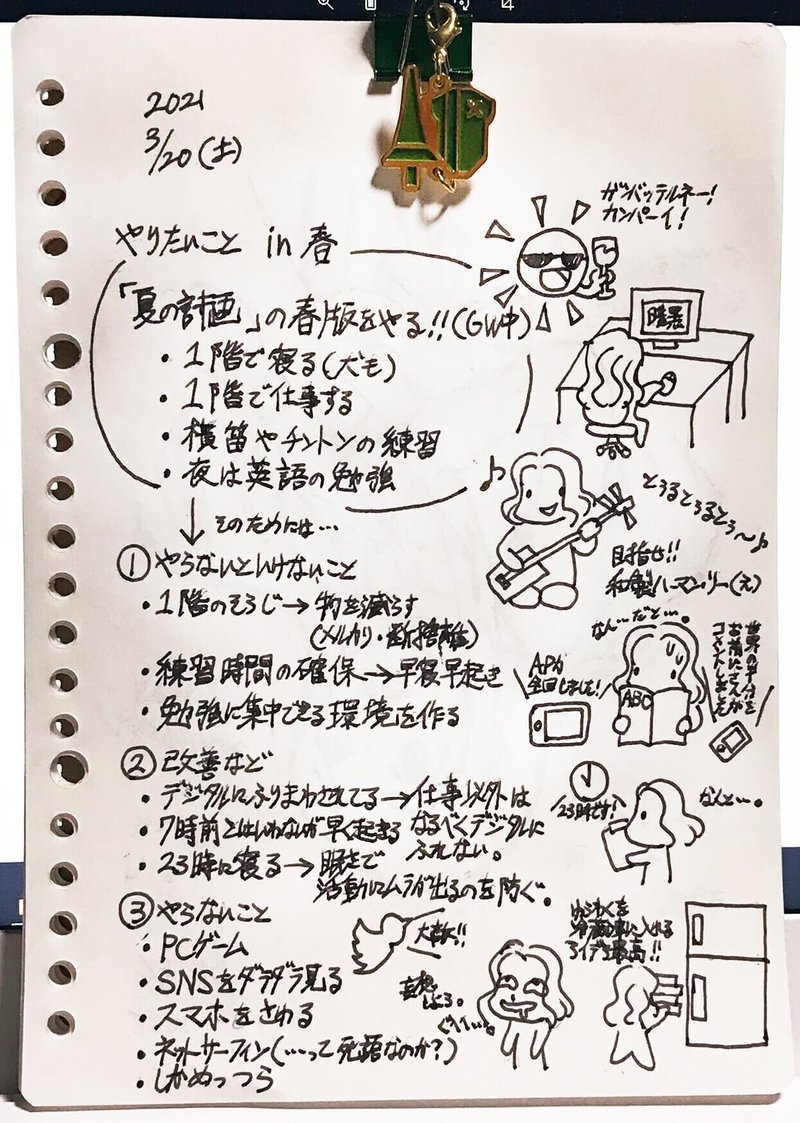 2021
3/20(土)
やりたいこと in 春
「夏の計画」の春版をやる!!(GW中)
・1階で寝る(犬も)
・1階で仕事する
・横笛やチントンの練習
・夜は英語の勉強
↓そのためには…
①やらないといけないこと
・1階のそうじ→物を減らす
(メルカリ・断捨離)
・練習時間の確保→早寝早起き
・勉強に集中できる環境を作る
②改善など
・デジタルにふりまわされてる→仕事以外は
なるべくデジタルに
ふれない。
・7時前とはいわないが早く起きる
・23時に寝る→眠さで
活動にムラが出るのを防ぐ。
③やらないこと
・PCゲーム
・SNSをダラダラ見る
・スマホをさわる
・ネットサーフィン(…って死語なのか?)
・しかめっつら
ガンバッテルネー!
カンパーイ!
♪
とぅるとぅるとぅ〜♪
目指せ!!
和製ハーマン・リー(え)
なん…だと…。
APが
全回しました!
ABC
コメントしました
23時です!
なんと…。
大草!!
ぐへへ…
ゆうわくを
冷蔵庫に入れる
アイデア最高!!